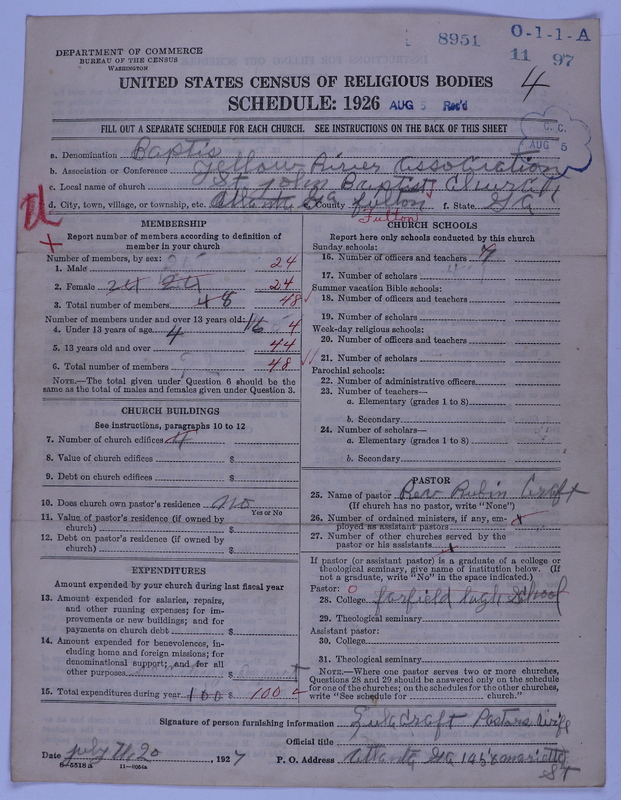 8951
O-1-1-A
11 97
DEPARTMENT OF COMMERCE
BUREAU OF THE CENSUS
WASHINGTON
UNITED STATES CENSUS OF RELIGIOUS BODIES
4
SCHEDULE: 1926 AUG 5 Rec'd
FILL OUT A SEPARATE SCHEDULE FOR EACH CHURCH. SEE INSTRUCTIONS ON THE BACK OF THIS SHEET
C. C.
AUG 5
a. Denomination Baptis
b. Association or Conference Yellow River Association
c. Local name of church St John Baptist Church
d. City, town, village, or township, etc. Atlanta Ga County fulton f. State Ga
Fulton
MEMBERSHIP
Report number of members according to definition of
member in your church
Number of members, by sex:
1. Male 24
2. Female 24 24 24
3. Total number of members 48 48
Number of members under and over 13 years old: 16
4. Under 13 years of age 4 4
5. 13 years old and over 44
6. Total number of members 48
NOTE.—The total given under Question 6 should be the
same as the total of males and females given under Question 3.
CHURCH BUILDINGS
See instructions, paragraphs 10 to 12
7. Number of church edifices
8. Value of church edifices $
9. Debt on church edifices $
10. Does church own pastor's residence? no
Yes or No
11. Value of pastor's residence (if owned by
church) $
12. Debt on pastor's residence (if owned by
church) $
EXPENDITURES
Amount expended by your church during last fiscal year
13. Amount expended for salaries, repairs,
and other running expenses; for im-
provements or new buildings; and for
payments on church debt $
14. Amount expended for benevolences, in-
cluding home and foreign missions; for
denominational support; and for all
other purposes $
15. Total expenditures during year 100 $ 100
CHURCH SCHOOLS
Report here only schools conducted by this church
Sunday schools:
16. Number of officers and teachers 9
17. Number of scholars
Summer vacation Bible schools:
18. Number of officers and teachers
19. Number of scholars
Week-day religious schools:
20. Number of officers and teachers
21. Number of scholars
Parochial schools:
22. Number of administrative officers
23. Number of teachers—
a. Elementary (grades 1 to 8)
b. Secondary
24. Number of scholars—
a. Elementary (grades 1 to 8)
b. Secondary
PASTOR
25. Name of pastor Rev Rubin Craft
(If church has no pastor, write "None")
26. Number of ordained ministers, if any, em-
ployed as assistant pastors x
27. Number of other churches served by the
pastor or his assistants x
If pastor (or assistant pastor) is a graduate of a college or
theological seminary, give name of institution below. (If
not a graduate, write "No" in the space indicated.)
Pastor: 0
28. College farfield high School
29. Theological seminary
Assistant pastor:
30. College
31. Theological seminary
NOTE.—Where one pastor serves two or more churches,
Questions 28 and 29 should be answered only on the schedule
for one of the churches; on the schedules for the other churches,
write "See schedule for church."
Signature of person furnishing information Craft Pastors Wife
Official title
Date july 20, 1927 P. O. Address Atlanta Ga marietta
St
8-5518a 11-9054a